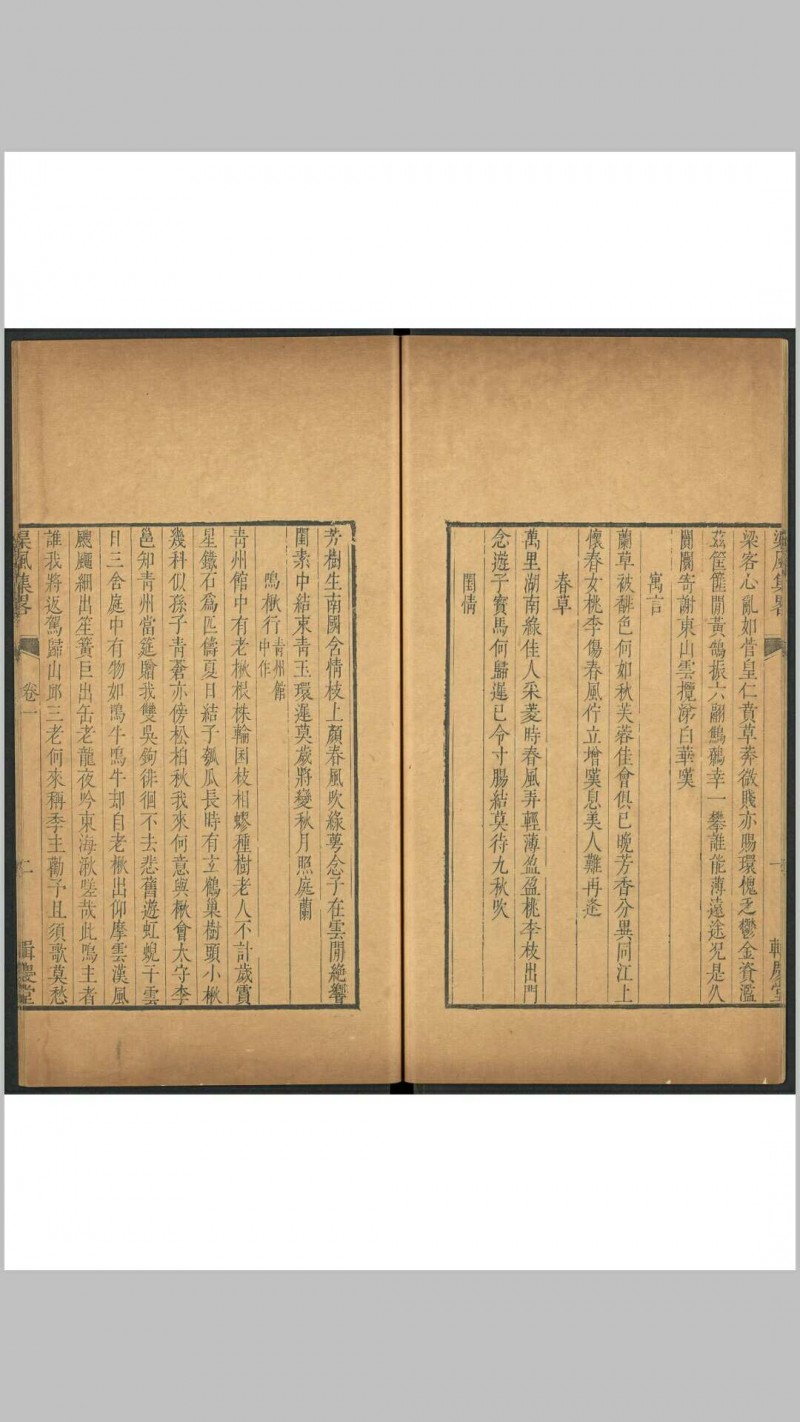 梁客心亂如菅皇仁賁草莽微賤亦賜環愧乏鬱金資濫
茲筐篚閒黃鵠振六翮鷦鷯幸一攀誰能薄遠途況是久
闤闠寄謝東山雲攬涕白華嘆
寓言
蘭草被緋色何如秋芙蓉佳會俱已晚芳香分異同江上
懷春女桃李傷春風佇立增嘆息美人難再逢
春草
萬里湖南綠佳人采菱時春風弄輕薄盈盈桃李枝出門
念遊子寶馬何歸遲已令寸腸結莫待九秋吹
閨情
芳樹生南國含情枝上顏春風吹綠蕚念子在雲閒絶響
閨素中結束青玉環遲莫歲將變秋月照庭蘭
鳴楸行青州館中作
青州館中有老楸根株輪囷枝相蟉種樹老人不計歲賓
星鐵石爲匹儔夏日結子瓠瓜長時有玄鶴巢樹頭小楸
幾科似孫子青蒼亦傍松柏秋我來何意與楸會太守李
邕知青州當筵贈我雙吳鉤徘徊不去悲舊遊虹蜺干雲
日三舍庭中有物如鳴牛鳴牛却自老楸出仰摩雲漢風
颼飀細出笙簧巨出缶老龍夜吟東海湫嗟哉此鳴主者
誰我將返駕歸山邱三老何來稱季主勸予且須歌莫愁
集畧
卷一
二
輯慶堂